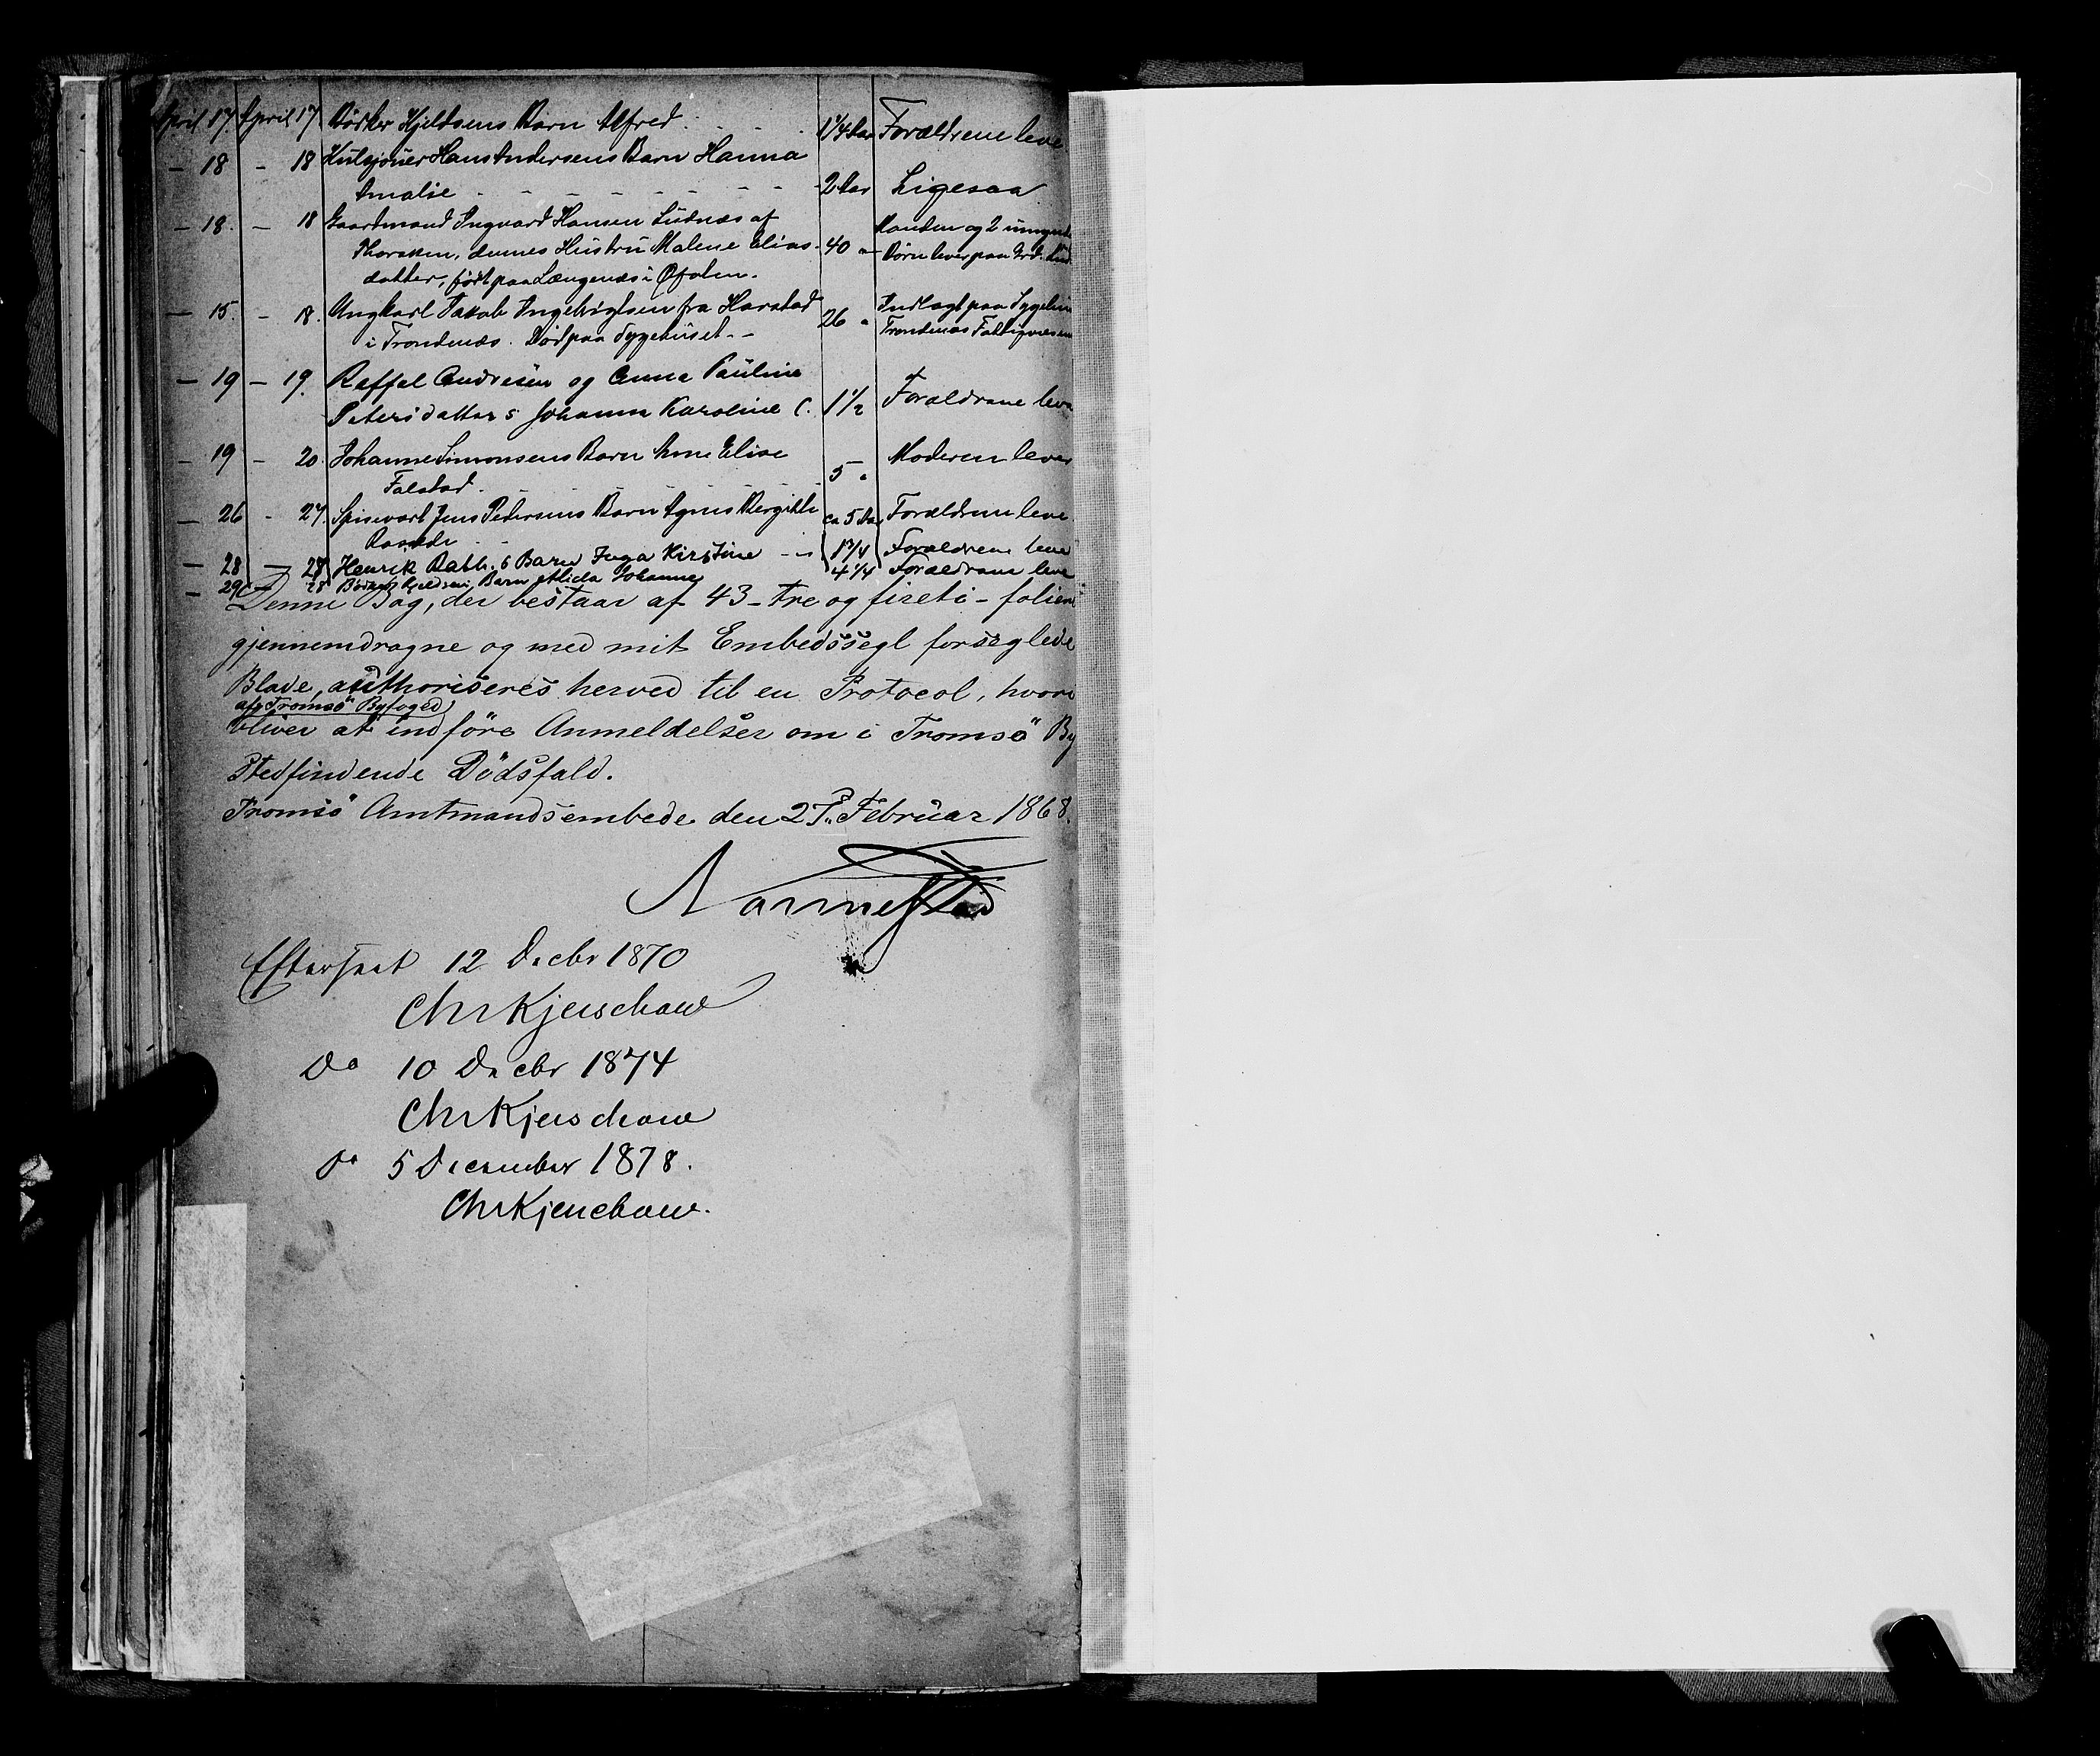 April 17 April 17 Bødker Kjeldsens Barn Alfred 1¼ Aar Forældrene leve
— 18 — 18 Hans Andersens Barn Hanna
Amalie 2 Aar Ligesaa
— 18. — 18 Gaardmand Ingvard Hansen af
Hustru Malene Elias- 40 " Manden og 2
datter, født paa Længenæs i Ofoten. Børn lever paa
— 15. — 18. Ungkarl Jakob Ingebrigtsen fra Harstad 26 " Indlagt paa
i Trondenæs. Død paa Sygehuset. — Trondenæs
— 19 — 19. Raffel Andresen og Anna Pauline
Petersdatters Johanna Karoline C. 1½ Forældrene leve
— 19 — 20. Johanne Simonsens Barn Anne Elise 5 " Moderen lever
Falstad
— 26 - 27. Spisevært Jens Pedersens Barn Agnes Bergitte ca 5 Aar Forældrene leve
— 28 — 28 Henrik Rath.s Barn Inga Kirstine — 1¾ Forældrene leve
— 29 — 28 Bødker Kjeldsens Barn Alida Johanne 4¼ Forældrene leve
Denne Bog, der bestaar af 43 - tre og fireti - folierede
gjennemdragne og med mit Embedssegl forseglede
Blade, authoriseres herved til en Protocol, hvori
af Tromsö Byfoged
bliver at indföre Anmeldelser om i Tromsö By
Stedfindende Dödsfald.
Tromsö Amtmandsembede den 27. Februar 1868.
Nannestad
Efterseet 12 Decbr 1870
Chr Kjerschow
Do 10 Decbr 1874
Chr Kjerschow
Do 5 December 1878.
Chr Kjerschow.